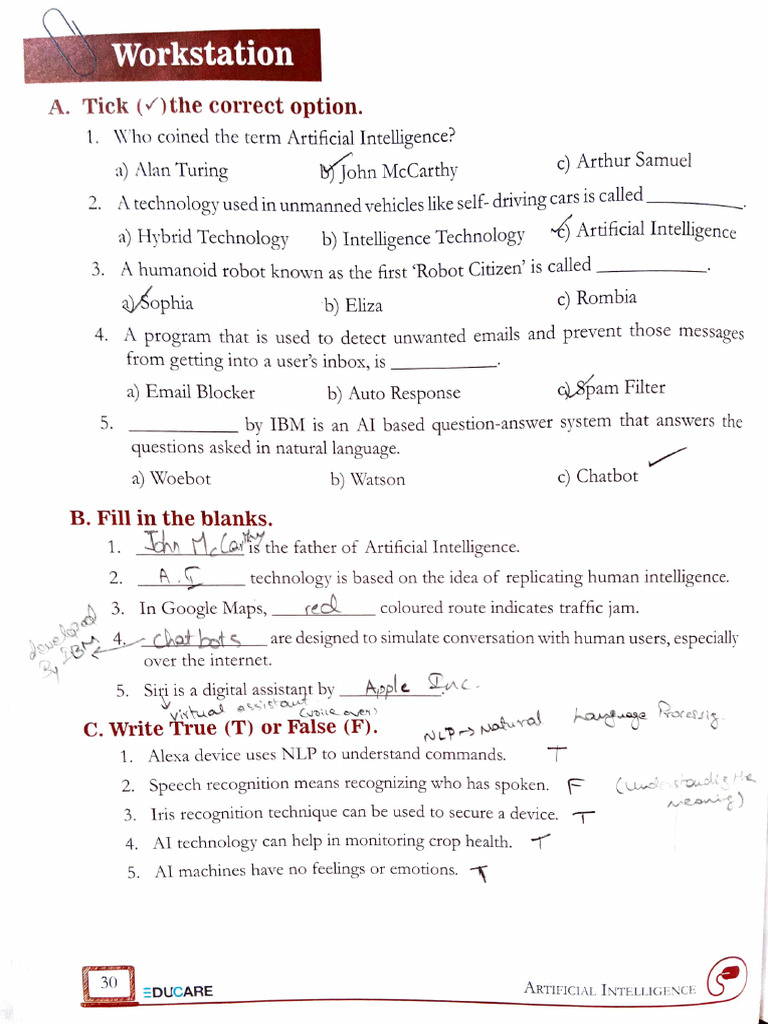 Workstation
A. Tick (✓) the correct option.
1. Who coined the term Artificial Intelligence?
a) Alan Turing b) John McCarthy c) Arthur Samuel
2. A technology used in unmanned vehicles like self- driving cars is called ____________.
a) Hybrid Technology b) Intelligence Technology c) Artificial Intelligence
3. A humanoid robot known as the first ‘Robot Citizen’ is called ____________.
a) Sophia b) Eliza c) Rombia
4. A program that is used to detect unwanted emails and prevent those messages
from getting into a user’s inbox, is ____________.
a) Email Blocker b) Auto Response c) Spam Filter
5. ____________ by IBM is an AI based question-answer system that answers the
questions asked in natural language.
a) Woebot b) Watson c) Chatbot ✓
B. Fill in the blanks.
1. John McCarthy is the father of Artificial Intelligence.
2. A.I technology is based on the idea of replicating human intelligence.
3. In Google Maps, red coloured route indicates traffic jam.
developed
By IBM
4. chatbots are designed to simulate conversation with human users, especially
over the internet.
5. Siri is a digital assistant by Apple Inc.
virtual assistant (voice over)
C. Write True (T) or False (F).
NLP → Natural Language Processig.
1. Alexa device uses NLP to understand commands. T
2. Speech recognition means recognizing who has spoken. F (Understanding the
meaning)
3. Iris recognition technique can be used to secure a device. T
4. AI technology can help in monitoring crop health. T
5. AI machines have no feelings or emotions. T
30 EDUCARE ARTIFICIAL INTELLIGENCE